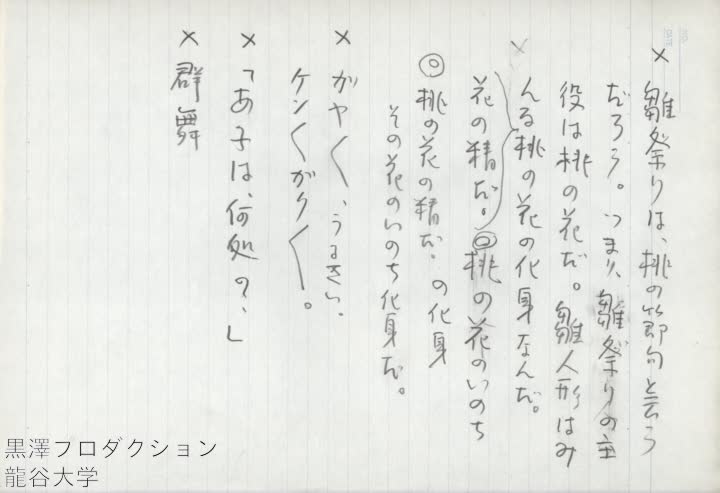 × 雛祭りは、桃の節句と云う
だろう。つまり、雛祭りの主
役は桃の花だ。雛人形はみ
× んな桃の花の化身なんだ。
花の精だ。◎桃の花のいのち
◎桃の花の精だ.の化身
その花のいのち化身だ。
× ガヤ〱、うるさい、
ケン〱ガク〱。
× 「あ子は、何処の、」
× 群舞
黒澤プロダクション
龍谷大学